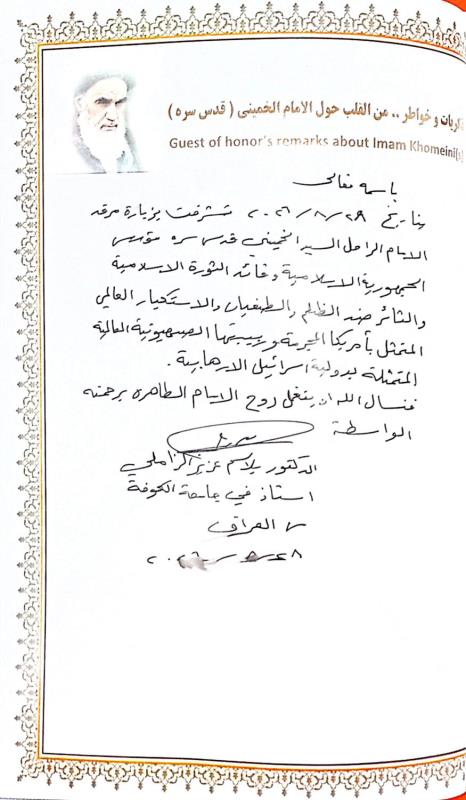 ذكريات و خواطر .. من القلب حول الامام الخميني ( قدس سره )
Guest of honor's remarks about Imam Khomeini(s)
باسمه تعالى
بتاريخ ٢٠٢٦/٨/٢٨ تشرفت بزيارة مرقد
الامام الراحل السيد الخميني قدس سره مؤسس
الجمهورية الاسلامية وقائد الثورة الاسلامية
والثائر ضد الظلم والطغيان والاستكبار العالمي
المتمثل بأمريكا المجرمة وربيبتها الصهيونية العالمية
المتمثلة بدولة اسرائيل الارهابية .
فنسال الله ان يتغمد روح الامام الطاهره برحمته
الواسعة
الدكتور عزيز الزاملي
استاذ في جامعة الكوفة
العراق